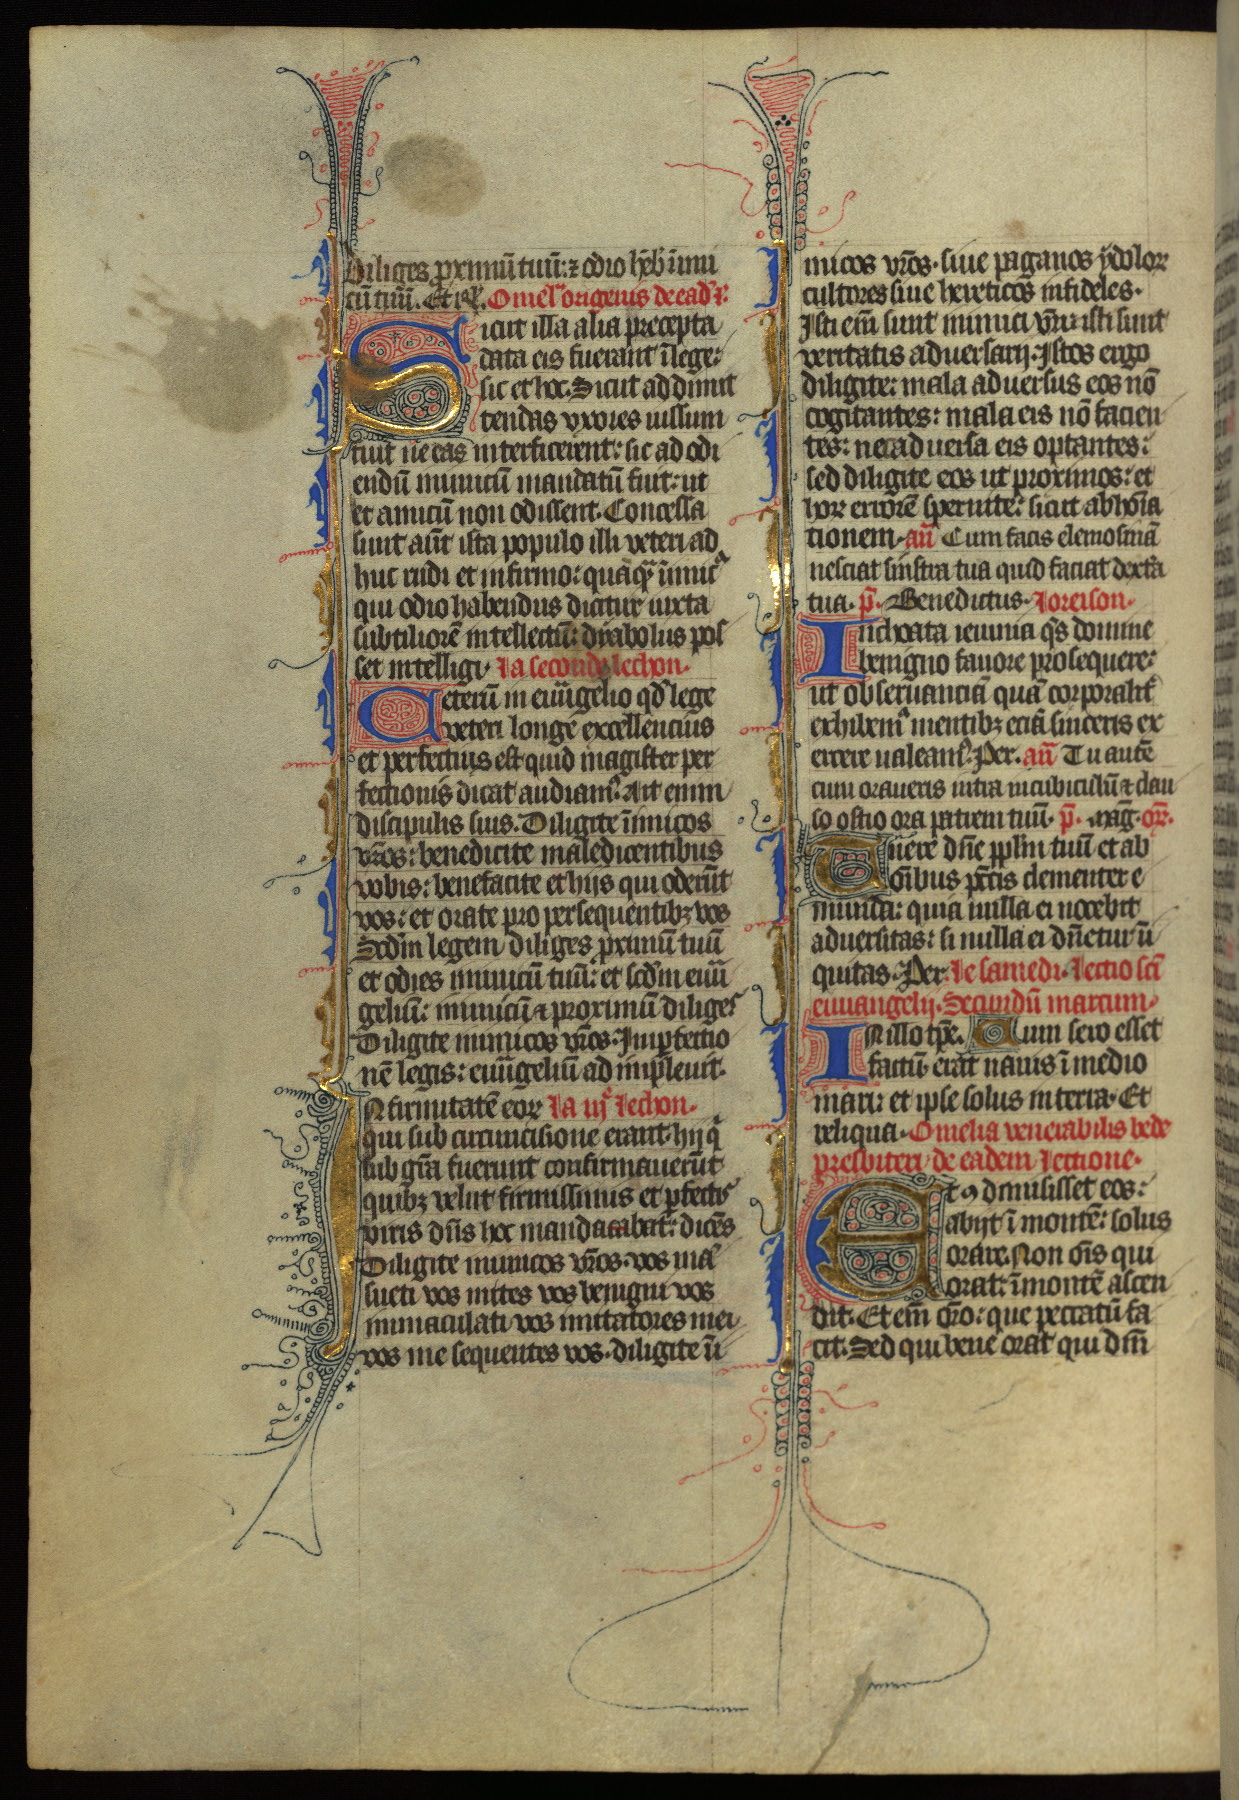 Diliges pxımū tuū: ⁊ odio hēb̄ inimi
cū tuū. Et rƚ. Omel' origenis de ead' ꝛ.
Sicut illa alia precepta
data eis fuerant ī lege:
sic et hoc. Sicut ad dimit
tendas vxores iussum
fuit ne eas interficerent: sic ad odi
endū inimicū mandatū fuit: ut
et amicū non odissent. Concessa
sunt aūt ista populo illi veteri ad
huc rudi et infirmo: quāq̄ inimic9
qui odio habendus dicitur iuxta
subtiliorē intellectū: dyabolus pos
set intelligi. la seconde lechon.
Ceterū in euūgelio qd' lege
veteri longe excellencius
et perfectius est quid magister per
fectionis dicat audiam9. Ait enim
discipulis suis. Diligite īimicos
vr̄os: benedicite maledicentibus
vobis: benefacite et hijs qui oderūt
vos: et orate pro persequentibꝫ vos
Scd'm legem diliges pximū tuū
et odies inimicū tuū: et scd'm euū
geliū: inimicū ⁊ proximū diliges
Diligite inimicos vr̄os. Impfectio
nē legis: euūgeliū adimpleuit.
Infirmitatē eoꝝ la iij^e lechon.
qui sub circuncisione erant: hij q^i
sub gr̄a fuerunt confirmauerūt
quibꝫ velut firmissimis et pfectis
viris dn̄s hoc mandatabat: dicēs
Diligite inimicos vr̄os. vos mā
sueti vos mites vos benigni vos
inmaculati vos imitatores mei
vos me sequentes vos. diligite īi
micos vr̄os. siue paganos ydoloꝝ
cultores siue hereticos infideles.
Isti em̄ sunt inimici vr̄i: isti sunt
veritatis aduersarij. Istos ergo
diligite: mala aduersus eos nō
cogitantes: mala eis nō facien
tes: nec aduersa eis optantes:
sed diligite eos ut proximos: et
hoꝝ errorē spernite: sicut abhoīa
tionem. an̄ Cum facis elemosinā
nesciat sinistra tua quid faciat dextā
tua. p̄. Benedictus. Loreison.
Inchoata ieiunia q̄s domine
benigno fauore prosequere:
ut obseruanciā quā corporalit'
exhibem9 mentibꝫ eciā sinceris ex
ercere ualeam9. Per. an̄ Tu autē
cum oraueris intra in cubiculū ⁊ clau
so ostio ora patrem tuū. p̄. maḡ. or̄.
Tuere dn̄e pplm̄ tuū et ab
om̄ibus pctīs clementer e
munda: quia nulla ei nocebit
aduersitas: si nulla ei dn̄etur ini
quitas. Per. le samedi. lectio sc̄i
euuangelij. Secundū marcum.
In illo tp̄e. Cum sero esset
factū. erat nauis ī medio
mari: et ipse solus in terra. Et
reliqua. Omelia venerabilis bede
presbiteri de eadem lectione.
Et ꝯ dimisisset eos:
abijt ī montē: solus
orare. Non om̄s qui
orat: ī montē ascen
dit. Et em̄ or̄o: que peccatū fa
cit. Sed qui bene orat qui dm̄